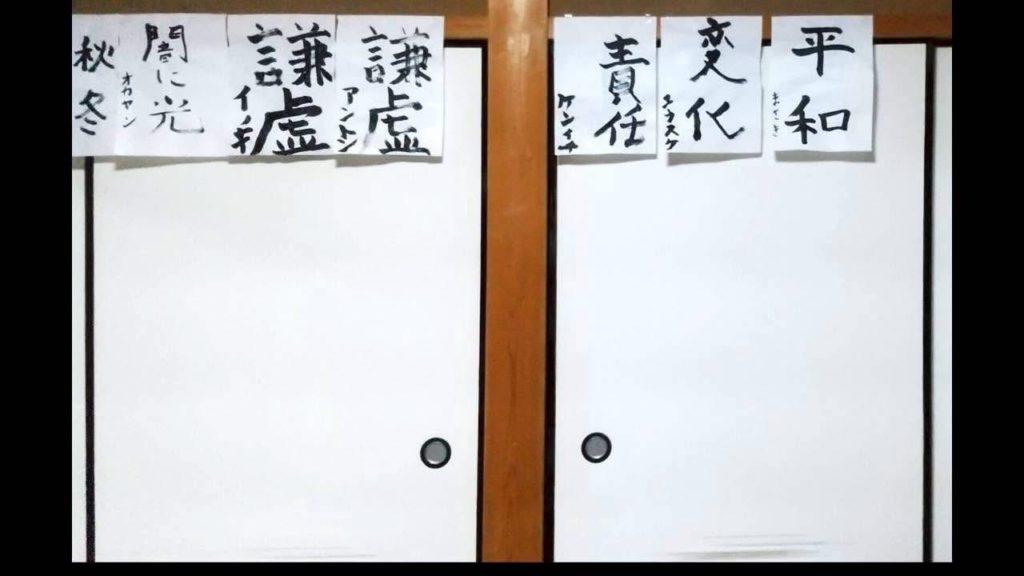 平和
変化
責任
ケンイチ
謙虚
アントン
謙虚
イノキ
闇に光
オカヤン
秋冬